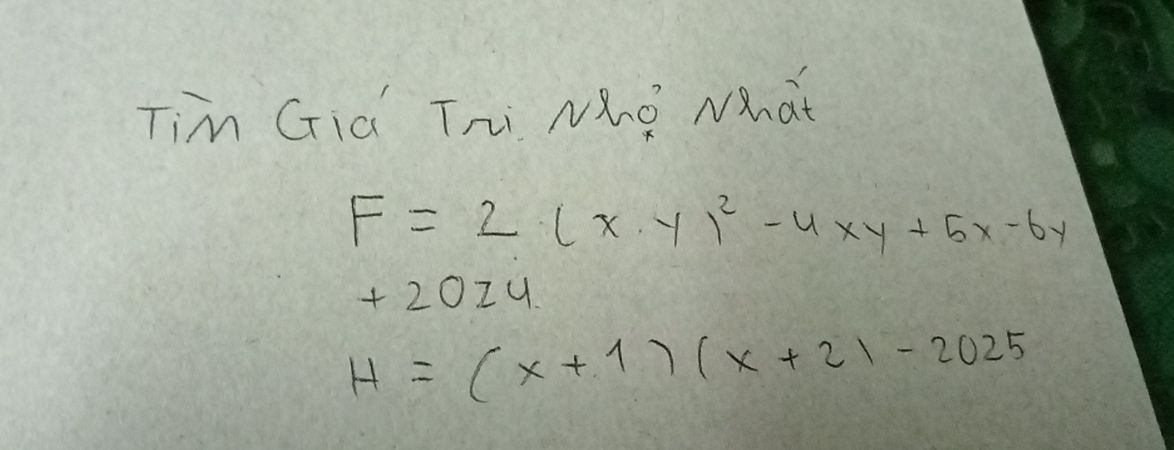 Tìm Giá Trị Nhỏ Nhất
F = 2 (x.y)² - 4xy + 5x - 6y
+ 2024
H = (x + 1)(x + 2) - 2025